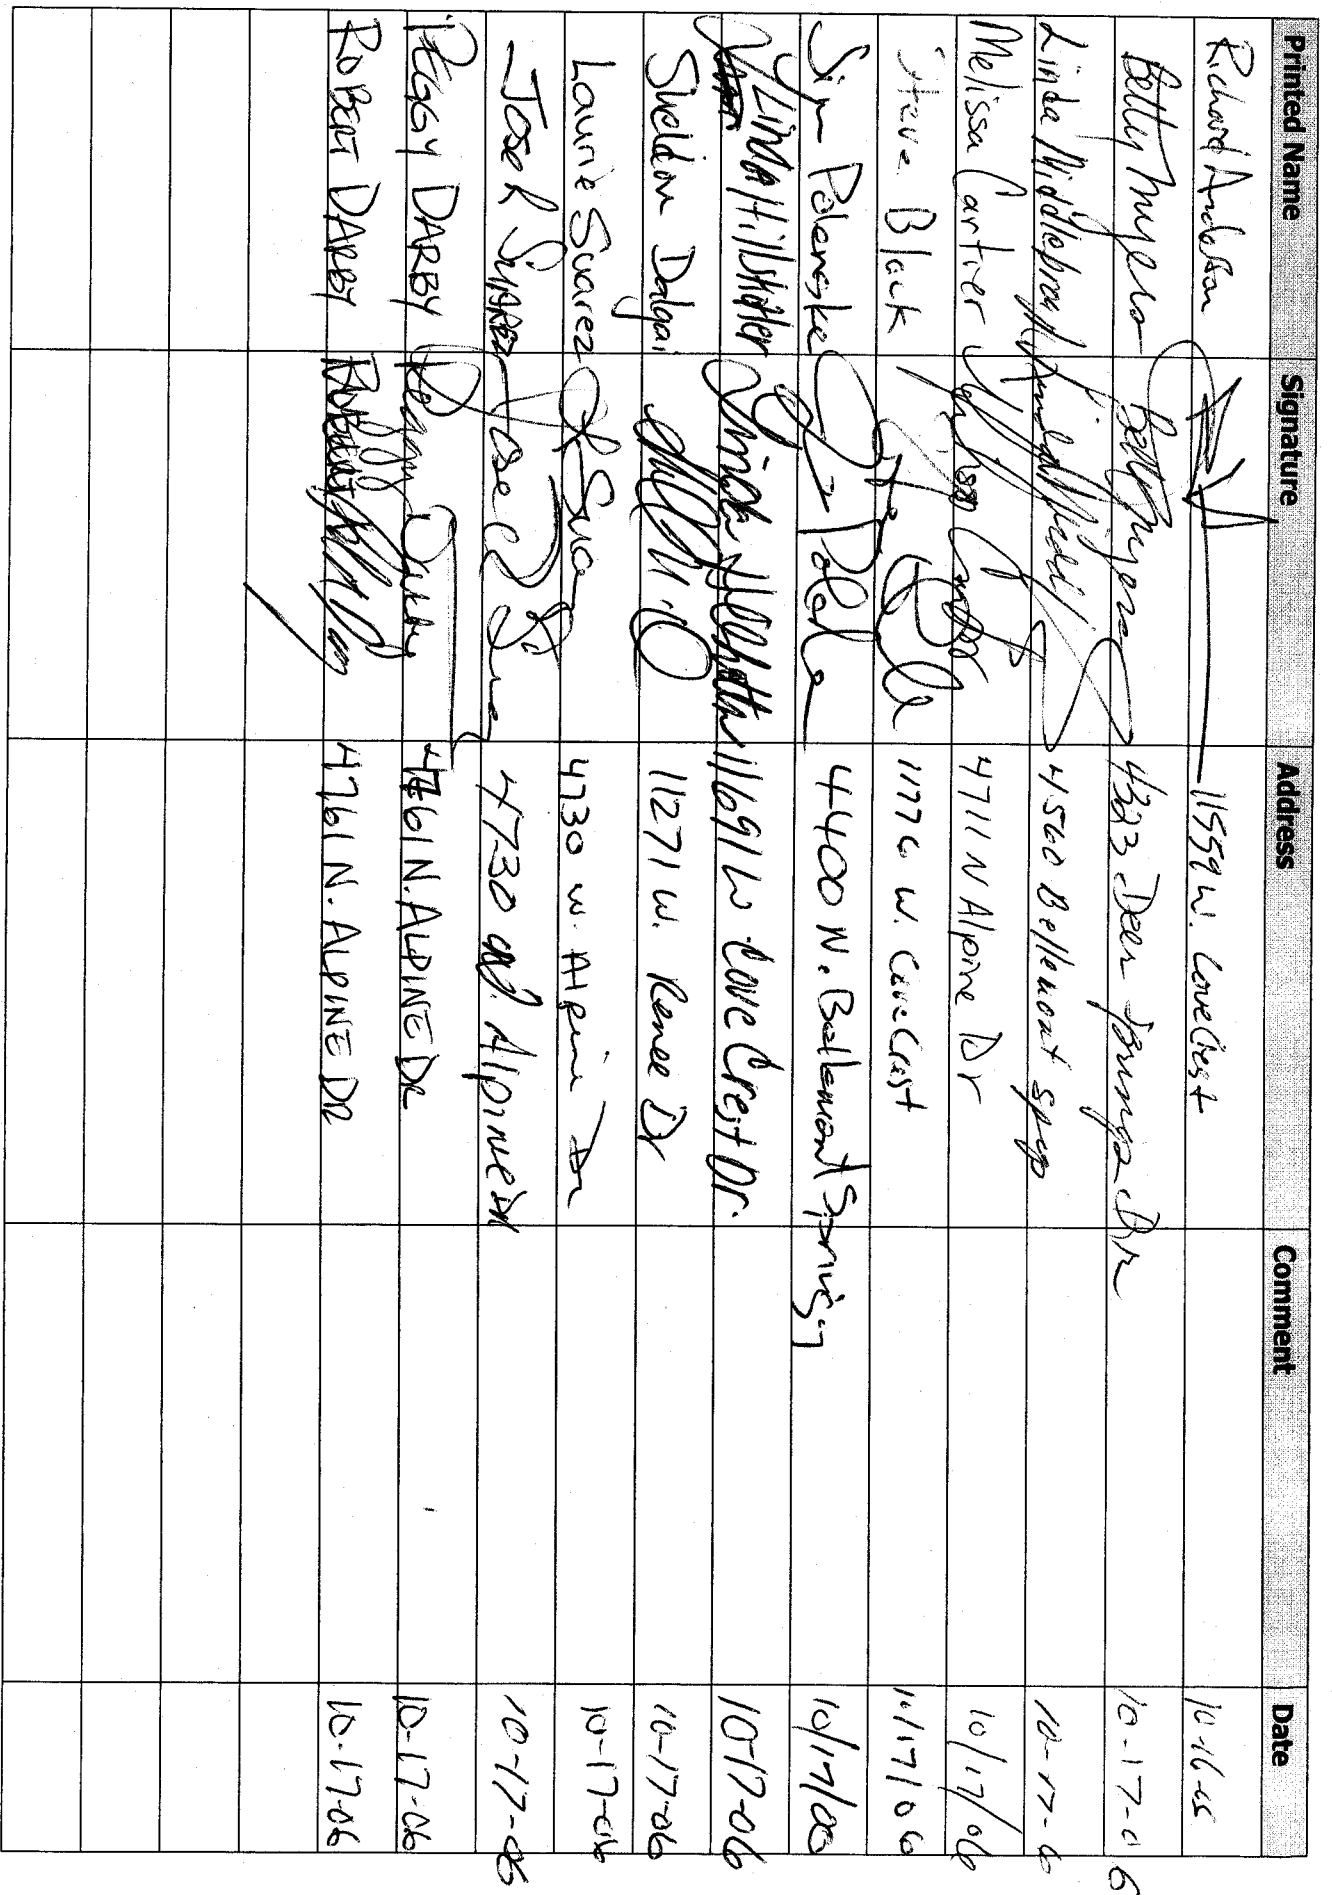 Printed Name Signature Address Comment Date
Richard Anderson 11559 W. CoveCrest 10-16-06
Betty Myers Betty Myers 4323 Deer Springs Dr 10-17-06
Linda Middlebrook 4560 Bellemont Spgs 10-17-6
Melissa Cartier 4711 N Alpine Dr 10/17/06
Steve Black 11776 W. Cove Crest 10/17/06
Polanske 4400 N. Bellemont Springs 10/17/06
LINDA Linda 11691 W Cove Crest Dr. 10-17-06
Sheldon Dalgai 11271 W. Renee Dr 10-17-06
Laurie Suarez L Sua 4730 W. Alpine Dr 10-17-06
Jose R SUAREZ Jose R 4730 Alpine Dr 10-17-06
PEGGY DARBY Peggy Darby 4761 N. ALPINE DR 10-17-06
ROBERT DARBY Robert 4761 N. ALPINE DR 10-17-06